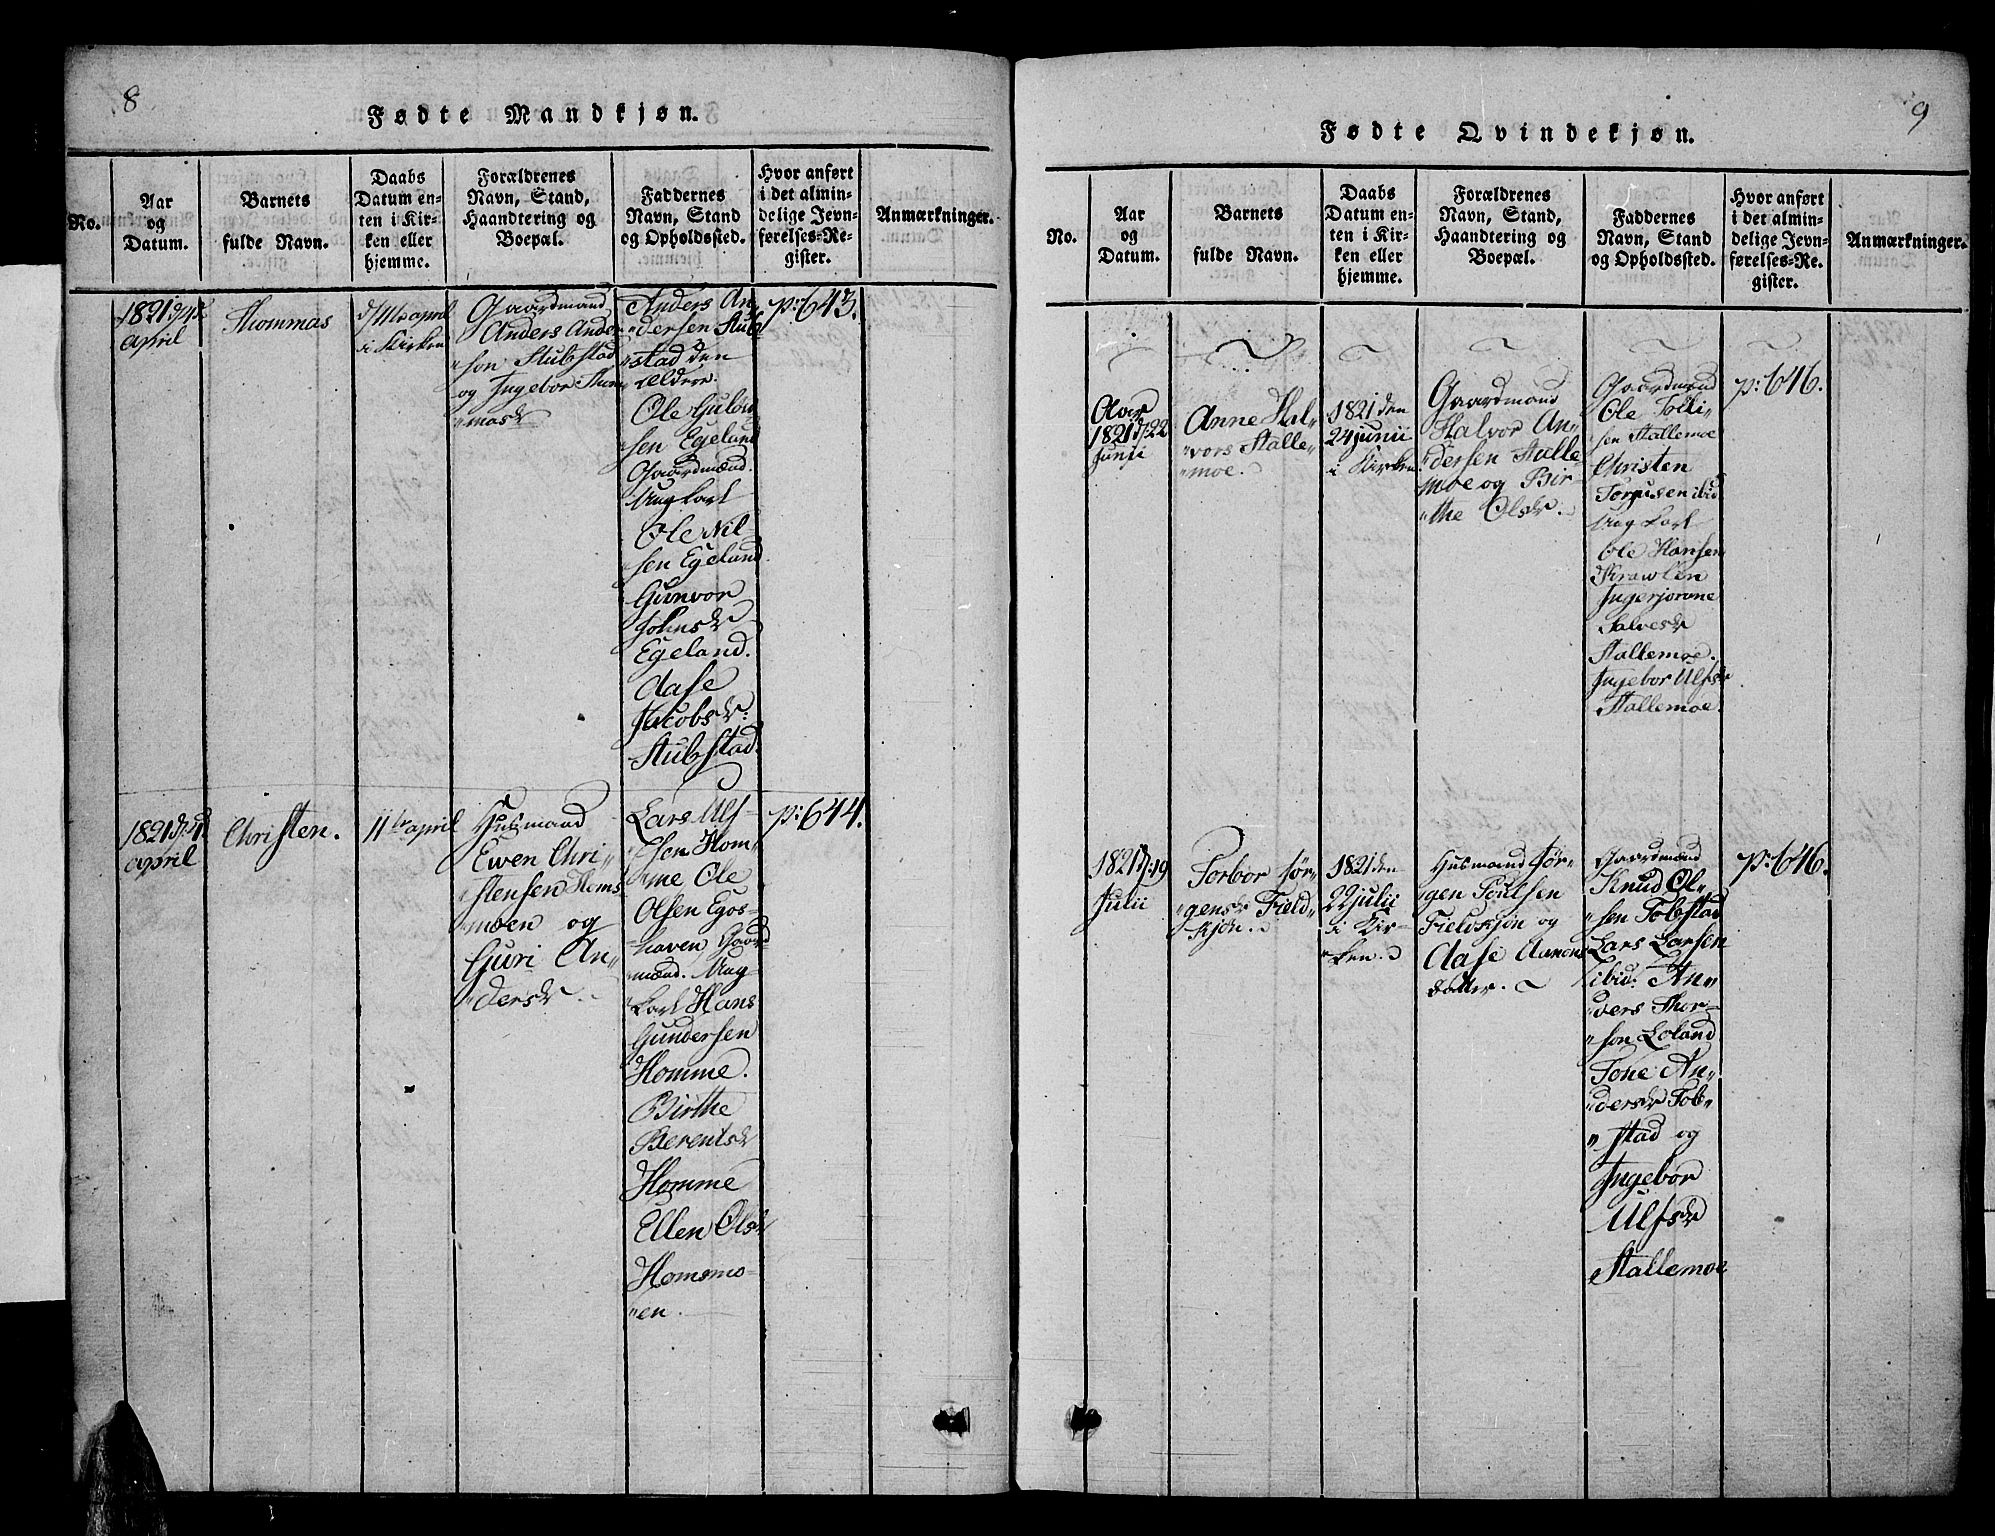 8
Fødte Mandkjøn.
No.
Aar
og
Datum.
Barnets
fulde Navn.
Daabs
Datum en-
ten i Kir-
ken eller
hjemme.
Forældrenes
Navn, Stand,
Haandtering og
Boepæl.
Faddernes
Navn, Stand
og Opholdssted.
Hvor anført
i det almin-
delige Jevn-
førelses-Re-
gister.
Anmærkninger.
1821
april
Thommas
april
i Kirken
Gaardmand
Anders Ander
sen Stubstad
og Ingebor Thom
masdr
Anders An„
„dersen Stub
„stad den
ældere.
Ole
sen Egeland
Gaardmænd.
Ung Karl
Ole Nil„
sen Egeland
Gunvor
Johnsdr
Egeland.
Aase
Jacobsdr:
Stubstad.
p: 643.
1821
april
Christen.
11te april
Husmand
Ewen Chri„
„stensen Homs
moen og
Guri An„
„dersdr.
Lars Ulf„
„sen Hom„
„me Ole
Olsen Egos„
haven Gaard
mænd. Ung„
karl Hans
Gundersen
Homme.
Birthe
Berentsdr
Homme
Ellen Olsdr
Homsmo„
„en.
p: 644.
9
Fødte Qvindekjøn.
No.
Aar
og
Datum.
Barnets
fulde Navn.
Daabs
Datum en-
ten i Kir-
ken eller
hjemme.
Forældrenes
Navn, Stand,
Haandtering og
Boepæl.
Faddernes
Navn, Stand
og Opholdssted.
Hvor anført
i det almin-
delige Jevn-
førelses-Re-
gister.
Anmærkninger.
Aar
1821 d: 22
Junii
Anne Hal„
„vors Stalle„
„moe.
1821 den
24 junii
i Kirken
Gaardmand
Halvor An„
„dersen Stalle
moe og Bir„
„the Olsdr.
Gaardmænd
Ole Tolli„
sen Stallemoe
Christen
Torjusen ibid
Ung Karl
Ole Hansen
Krawlen
Ingerjorune
Salvesdr
Stallemoe.
Ingebor Ulfsdr
Stallemoe.
p: 646.
1821 d: 19
Julii
Torbor Jør„
„gensdr Field„
kjøn.
1821 den
22 julii
i Kir„
„ken.
Husmand Jør„
„gen Poulsen
Fieldskjøn og
Aase Aanons
datter.
Gaardmænd
Knud Ol„
„sen Tobstad
Lars Larsen
ibid: An„
„ders Thor„
„sen Loland
Tone An„
„dersdr Tob„
„stad og
Ingebor
Ulfsdr
Stallemoe
p: 646.